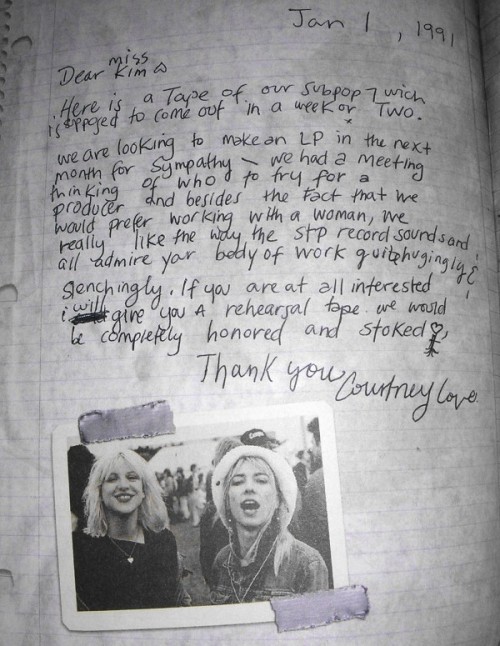 Jan 1, 1991
miss
Dear Kim
Here is a Tape of our subpop 7 wich
is sppozed to come out in a week or Two.
we are looking to make an LP in the next
month for Sympathy - we had a meeting
thinking of who to try for a
producer and besides the fact that we
would prefer working with a woman, we
really like the way the STP record sounds and
all admire your body of work quite hugingly &
stenchingly. If you are at all interested
i will give you A rehearsal tape. we would
be completely honored and stoked
Thank you
Courtney Love.